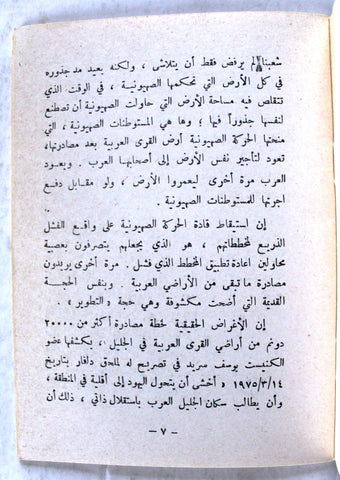 شعبنا لم يرفض فقط أن يتلاشى ، ولكنه يعيد مد جذوره
في كل الأرض التي تحكمها الصهيونية ، في الوقت الذي
تتقلص فيه مساحة الأرض التي حاولت الصهيونية أن تصطنع
لنفسها جذوراً فيها ؛ وها هي المستوطنات الصهيونية ، التي
منحتها الحركة الصهيونية أرض القرى العربية بعد مصادرتها،
تعود لتأجير نفس الأرض إلى أصحابها العرب . ويعود
العرب مرة أخرى ليعمروا الأرض ، ولو مقابل دفع
اجرتها للمستوطنات الصهيونية .
إن استيقاظ قادة الحركة الصهيونية على واقع الفشل
الذريع لمخططاتهم ، هو الذي يجعلهم يتصرفون بعصبية
محاولين اعادة تطبيق المخطط الذي فشل . مرة أخرى يريدون
مصادرة ما تبقى من الأراضي العربية . وبنفس الحجة
القديمة التي أضحت مكشوفة وهي حجة « التطوير » .
إن الأغراض الحقيقية لخطة مصادرة أكثر من ٢٠٠٠٠
دونم من أراضي القرى العربية في الجليل ، يكشفها عضو
الكنيست يوسف سريد في تصريح له لملحق دافار بتاريخ
١٩٧٥/٣/١٤ « أخشى أن يتحول اليهود إلى أقلية في المنطقة ،
وأن يطالب سكان الجليل العرب باستقلال ذاتي ، ذلك أن
– ٧ –